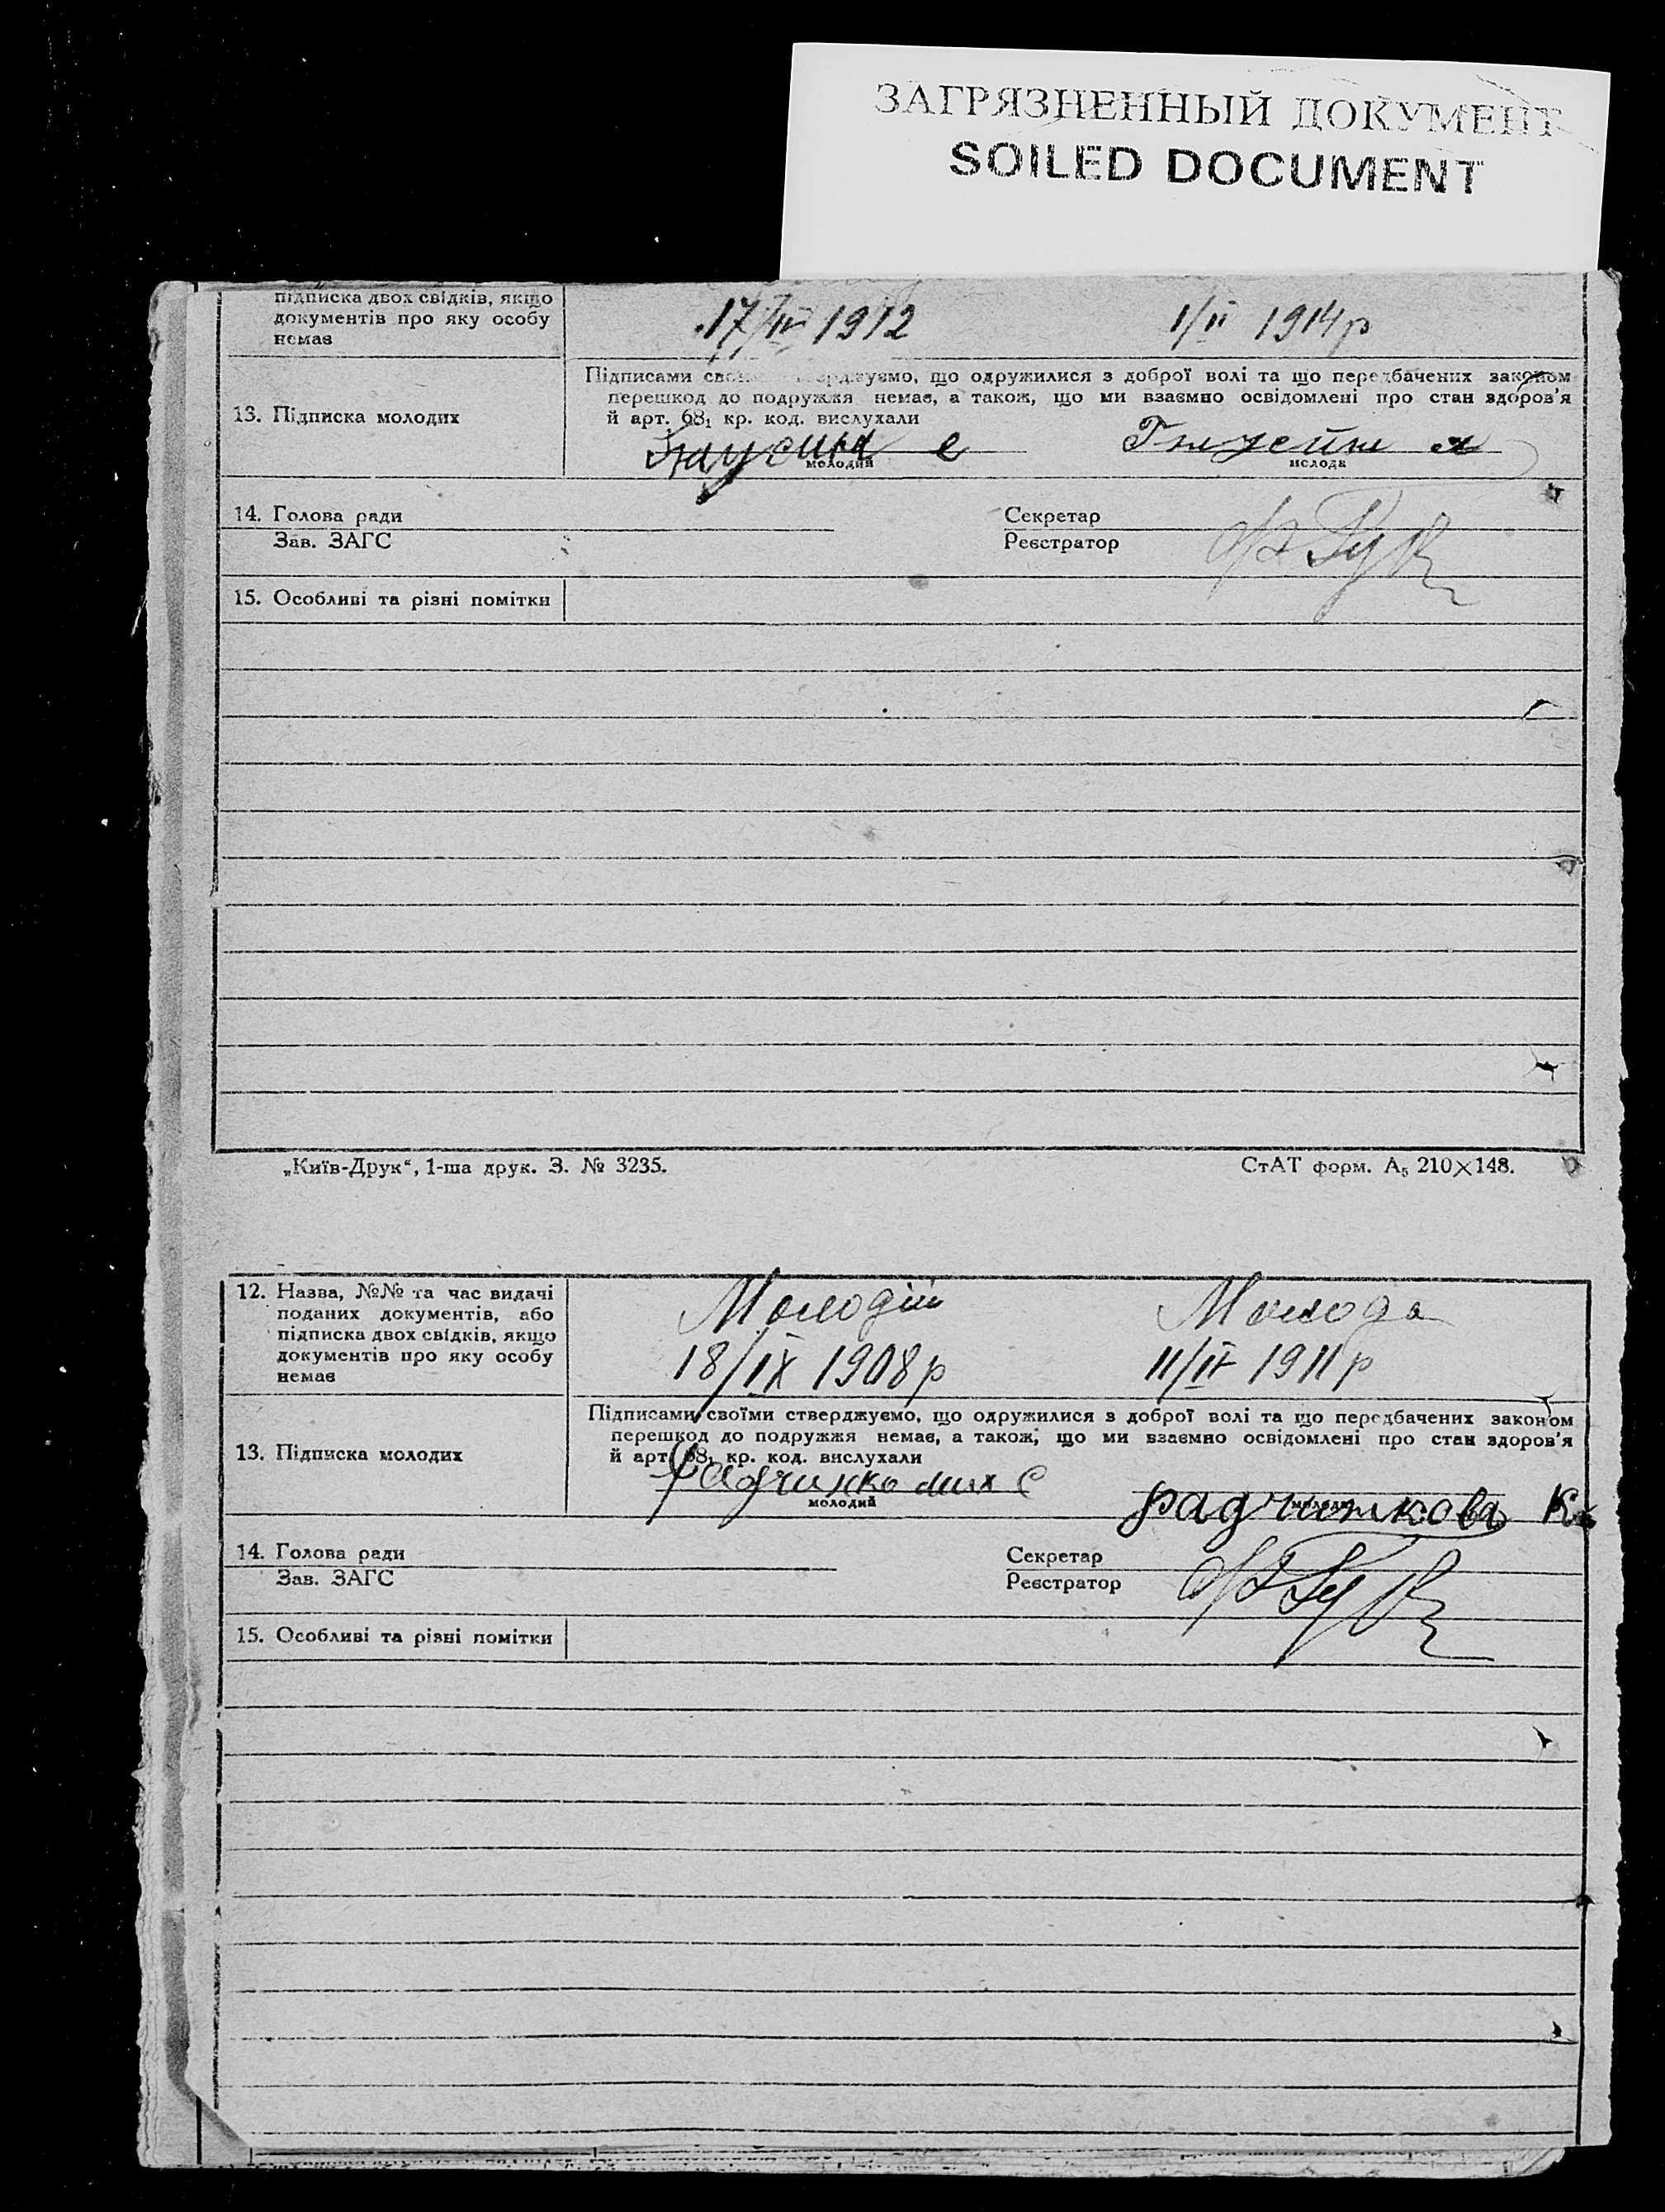 ЗАГРЯЗНЕННЫЙ ДОКУМЕНТ
SOILED DOCUMENT
підписка двох свідків, якщо
документів про яку особу
немає
17/IV 1912
1/II 1914 р
13. Підписка молодих
Підписами стверджуємо, що одружилися з доброї волі та що передбачених законом
перешкод до подружжя немає, а також, що ми взаємно освідомлені про стан здоров'я
й арт. 68₁ кр. код. вислухали
молодий
молода
14. Голова ради
Секретар
Зав. ЗАГС
Реєстратор
15. Особливі та різні помітки
„Київ-Друк“, 1-ша друк. З. № 3235.
СтАТ форм. А₅ 210×148.
12. Назва, №№ та час видачі
поданих документів, або
підписка двох свідків, якщо
документів про яку особу
немає
Молодій
Молода
18/IX 1908 р
11/IV 1911 р
13. Підписка молодих
Підписами своїми стверджуємо, що одружилися з доброї волі та що передбачених законом
перешкод до подружжя немає, а також, що ми взаємно освідомлені про стан здоров'я
й арт. 68₁ кр. код. вислухали
молодий
молода
14. Голова ради
Секретар
Зав. ЗАГС
Реєстратор
15. Особливі та різні помітки